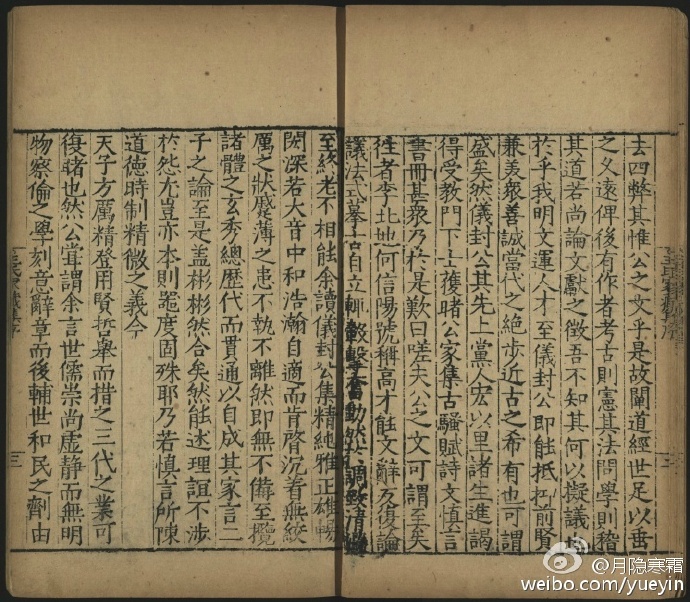 去四弊其惟公之文乎是故闡道經世足以垂
之久遠俾後有作者考古則憲其法問學則稽
其道若尚論文獻之徵吾不知其何以擬議
於乎我明文運人才至儀封公即能抵抑前賢
兼美衆善誠當代之絶步近古之希有也可謂
盛矣然儀封公其先上黨人宏以里諸生進謁
得受教門下士獲睹公家集古騷賦詩文慎言
書冊甚衆乃於是歎曰嗟夫公之文可謂至矣
往者李北地何信陽號稱高才能文辭反復論
議法式摹古自立輒轂擊奮動然
至終老不相能余讀儀封公集精純雅正雄暢
閎深若大音中和浩瀚自適而肯綮沉着無絞
厲之狀蹙薄之患不執不離然即無不備至攬
諸體之玄秀總歷代而貫通以自成其家言二
子之論至是盖彬彬然合矣然能述理誼不涉
於怨尤豈亦本則噐度固殊耶乃若慎言所陳
道德時制精微之義今
天子方厲精登用賢哲舉而措之三代之業可
復睹也然公甞謂余言世儒崇尚虚静而無明
物察倫之學刻意辭章而後輔世和民之劑由
三
@月隐寒霜
weibo.com/yueyin